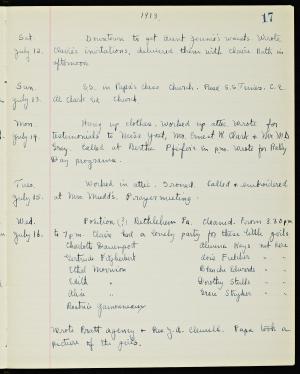 1913
17
Sat. Downtown to get Aunt Jennie's waists. Wrote
July 12. Claire's invitations, delivered them with Claire Ruth in
afternoon.
Sun. S.S. in Papa's class. Church. Read S.S. Times. C.E.
July 13. At Clark Ave Church
Mon. Hung up clothes. Worked up attic. Wrote for
July 14. testimonials to Miss Yost, Mr. Ernest H. Clark + Mr. W.D.
Gray. Called at Bertha Pfeifer's in p.m. Wrote for Rally
Day programs.
Tues. Worked in attic. Ironed. Called + embroidered
July 15. at Mrs. Mudd's. Prayer meeting.
Wed. Position (?) Bethlehem Pa. Cleaned. From 3.30 p.m.
July 16. to 7 p.m. Claire had a lovely party for these little girls
Charlotte Davenport
Gertrude
Ethel Morrison
Edith "
Alice "
Beatrice
Keys not here
Lois " "
Blanche Edwards " "
Dorothy Staples " "
Grace " "
Wrote Pratt agency + Rev. J.A. Clewell. Papa took a
picture of the girls.